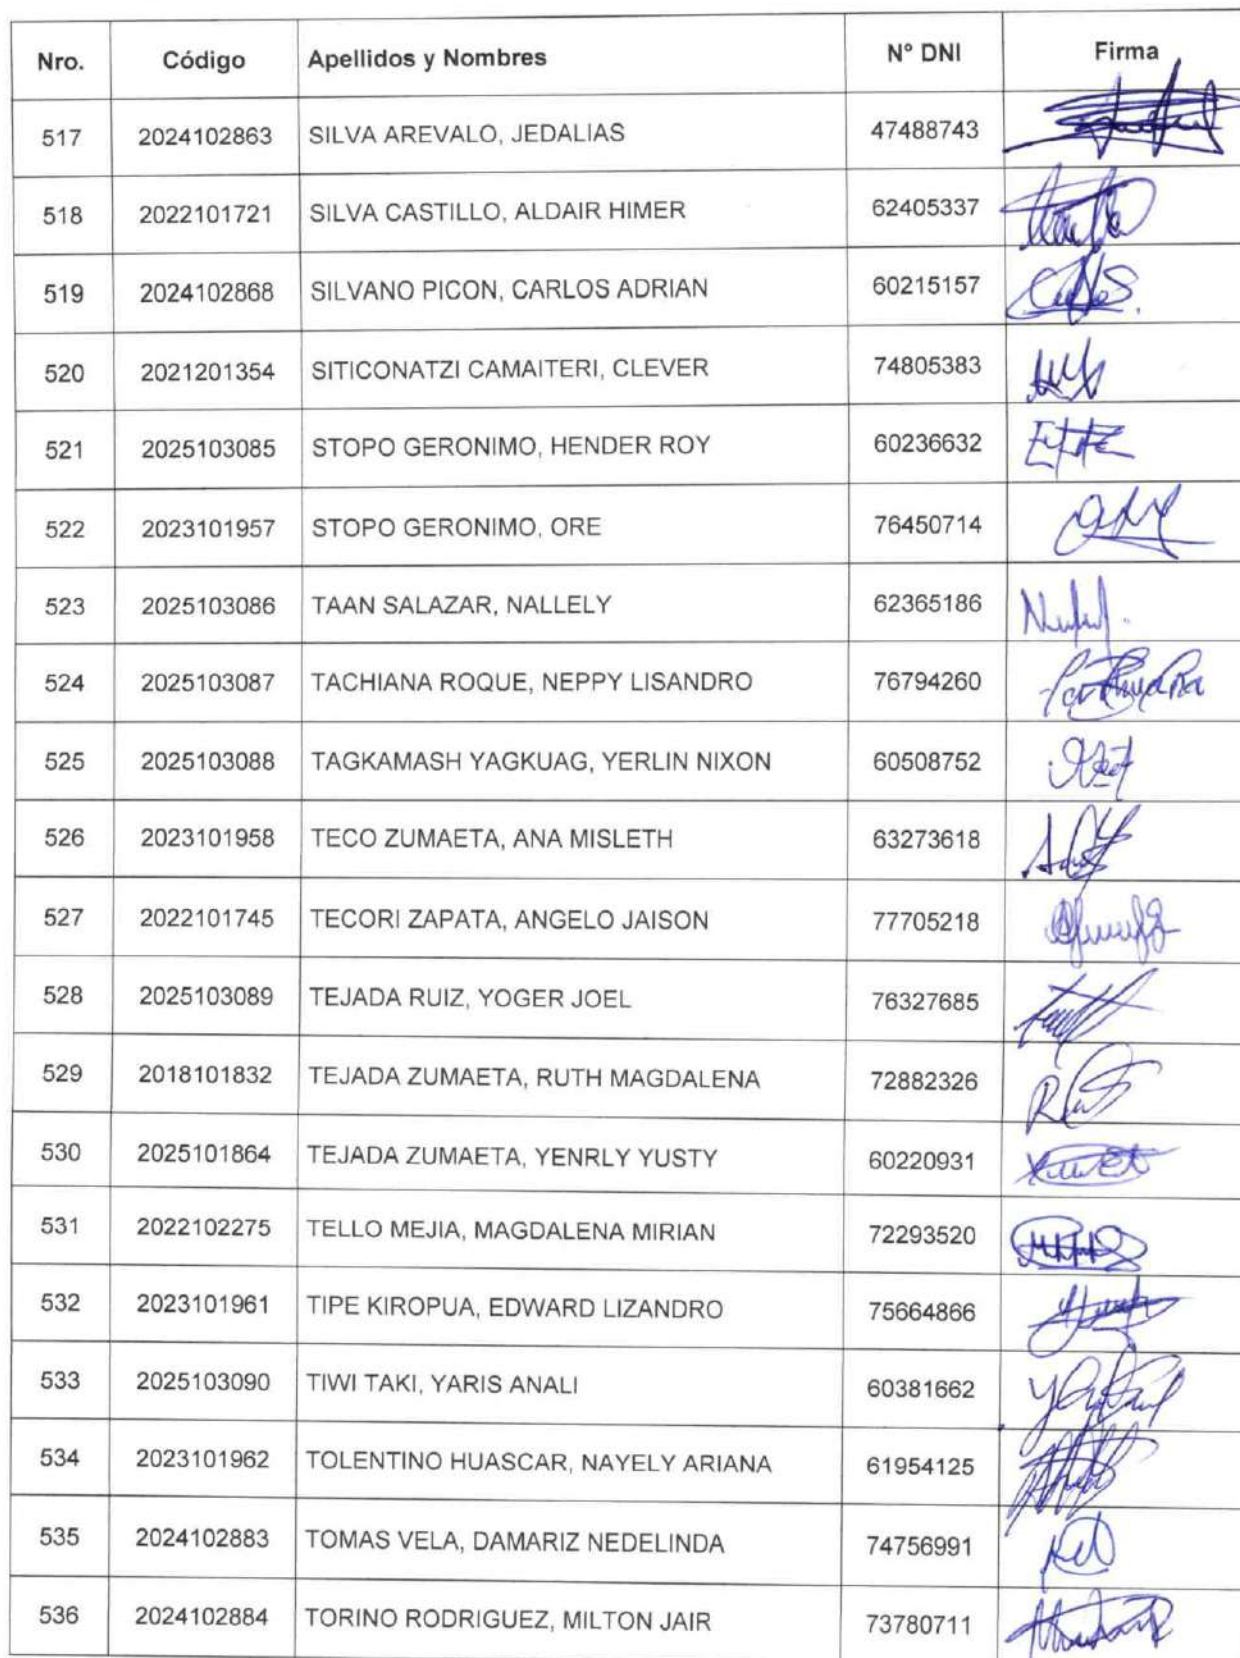 Nro. Código Apellidos y Nombres N° DNI Firma
517 2024102863 SILVA AREVALO, JEDALIAS 47488743
518 2022101721 SILVA CASTILLO, ALDAIR HIMER 62405337
519 2024102868 SILVANO PICON, CARLOS ADRIAN 60215157
520 2021201354 SITICONATZI CAMAITERI, CLEVER 74805383
521 2025103085 STOPO GERONIMO, HENDER ROY 60236632
522 2023101957 STOPO GERONIMO, ORE 76450714
523 2025103086 TAAN SALAZAR, NALLELY 62365186
524 2025103087 TACHIANA ROQUE, NEPPY LISANDRO 76794260
525 2025103088 TAGKAMASH YAGKUAG, YERLIN NIXON 60508752
526 2023101958 TECO ZUMAETA, ANA MISLETH 63273618
527 2022101745 TECORI ZAPATA, ANGELO JAISON 77705218
528 2025103089 TEJADA RUIZ, YOGER JOEL 76327685
529 2018101832 TEJADA ZUMAETA, RUTH MAGDALENA 72882326
530 2025101864 TEJADA ZUMAETA, YENRLY YUSTY 60220931
531 2022102275 TELLO MEJIA, MAGDALENA MIRIAN 72293520
532 2023101961 TIPE KIROPUA, EDWARD LIZANDRO 75664866
533 2025103090 TIWI TAKI, YARIS ANALI 60381662
534 2023101962 TOLENTINO HUASCAR, NAYELY ARIANA 61954125
535 2024102883 TOMAS VELA, DAMARIZ NEDELINDA 74756991
536 2024102884 TORINO RODRIGUEZ, MILTON JAIR 73780711